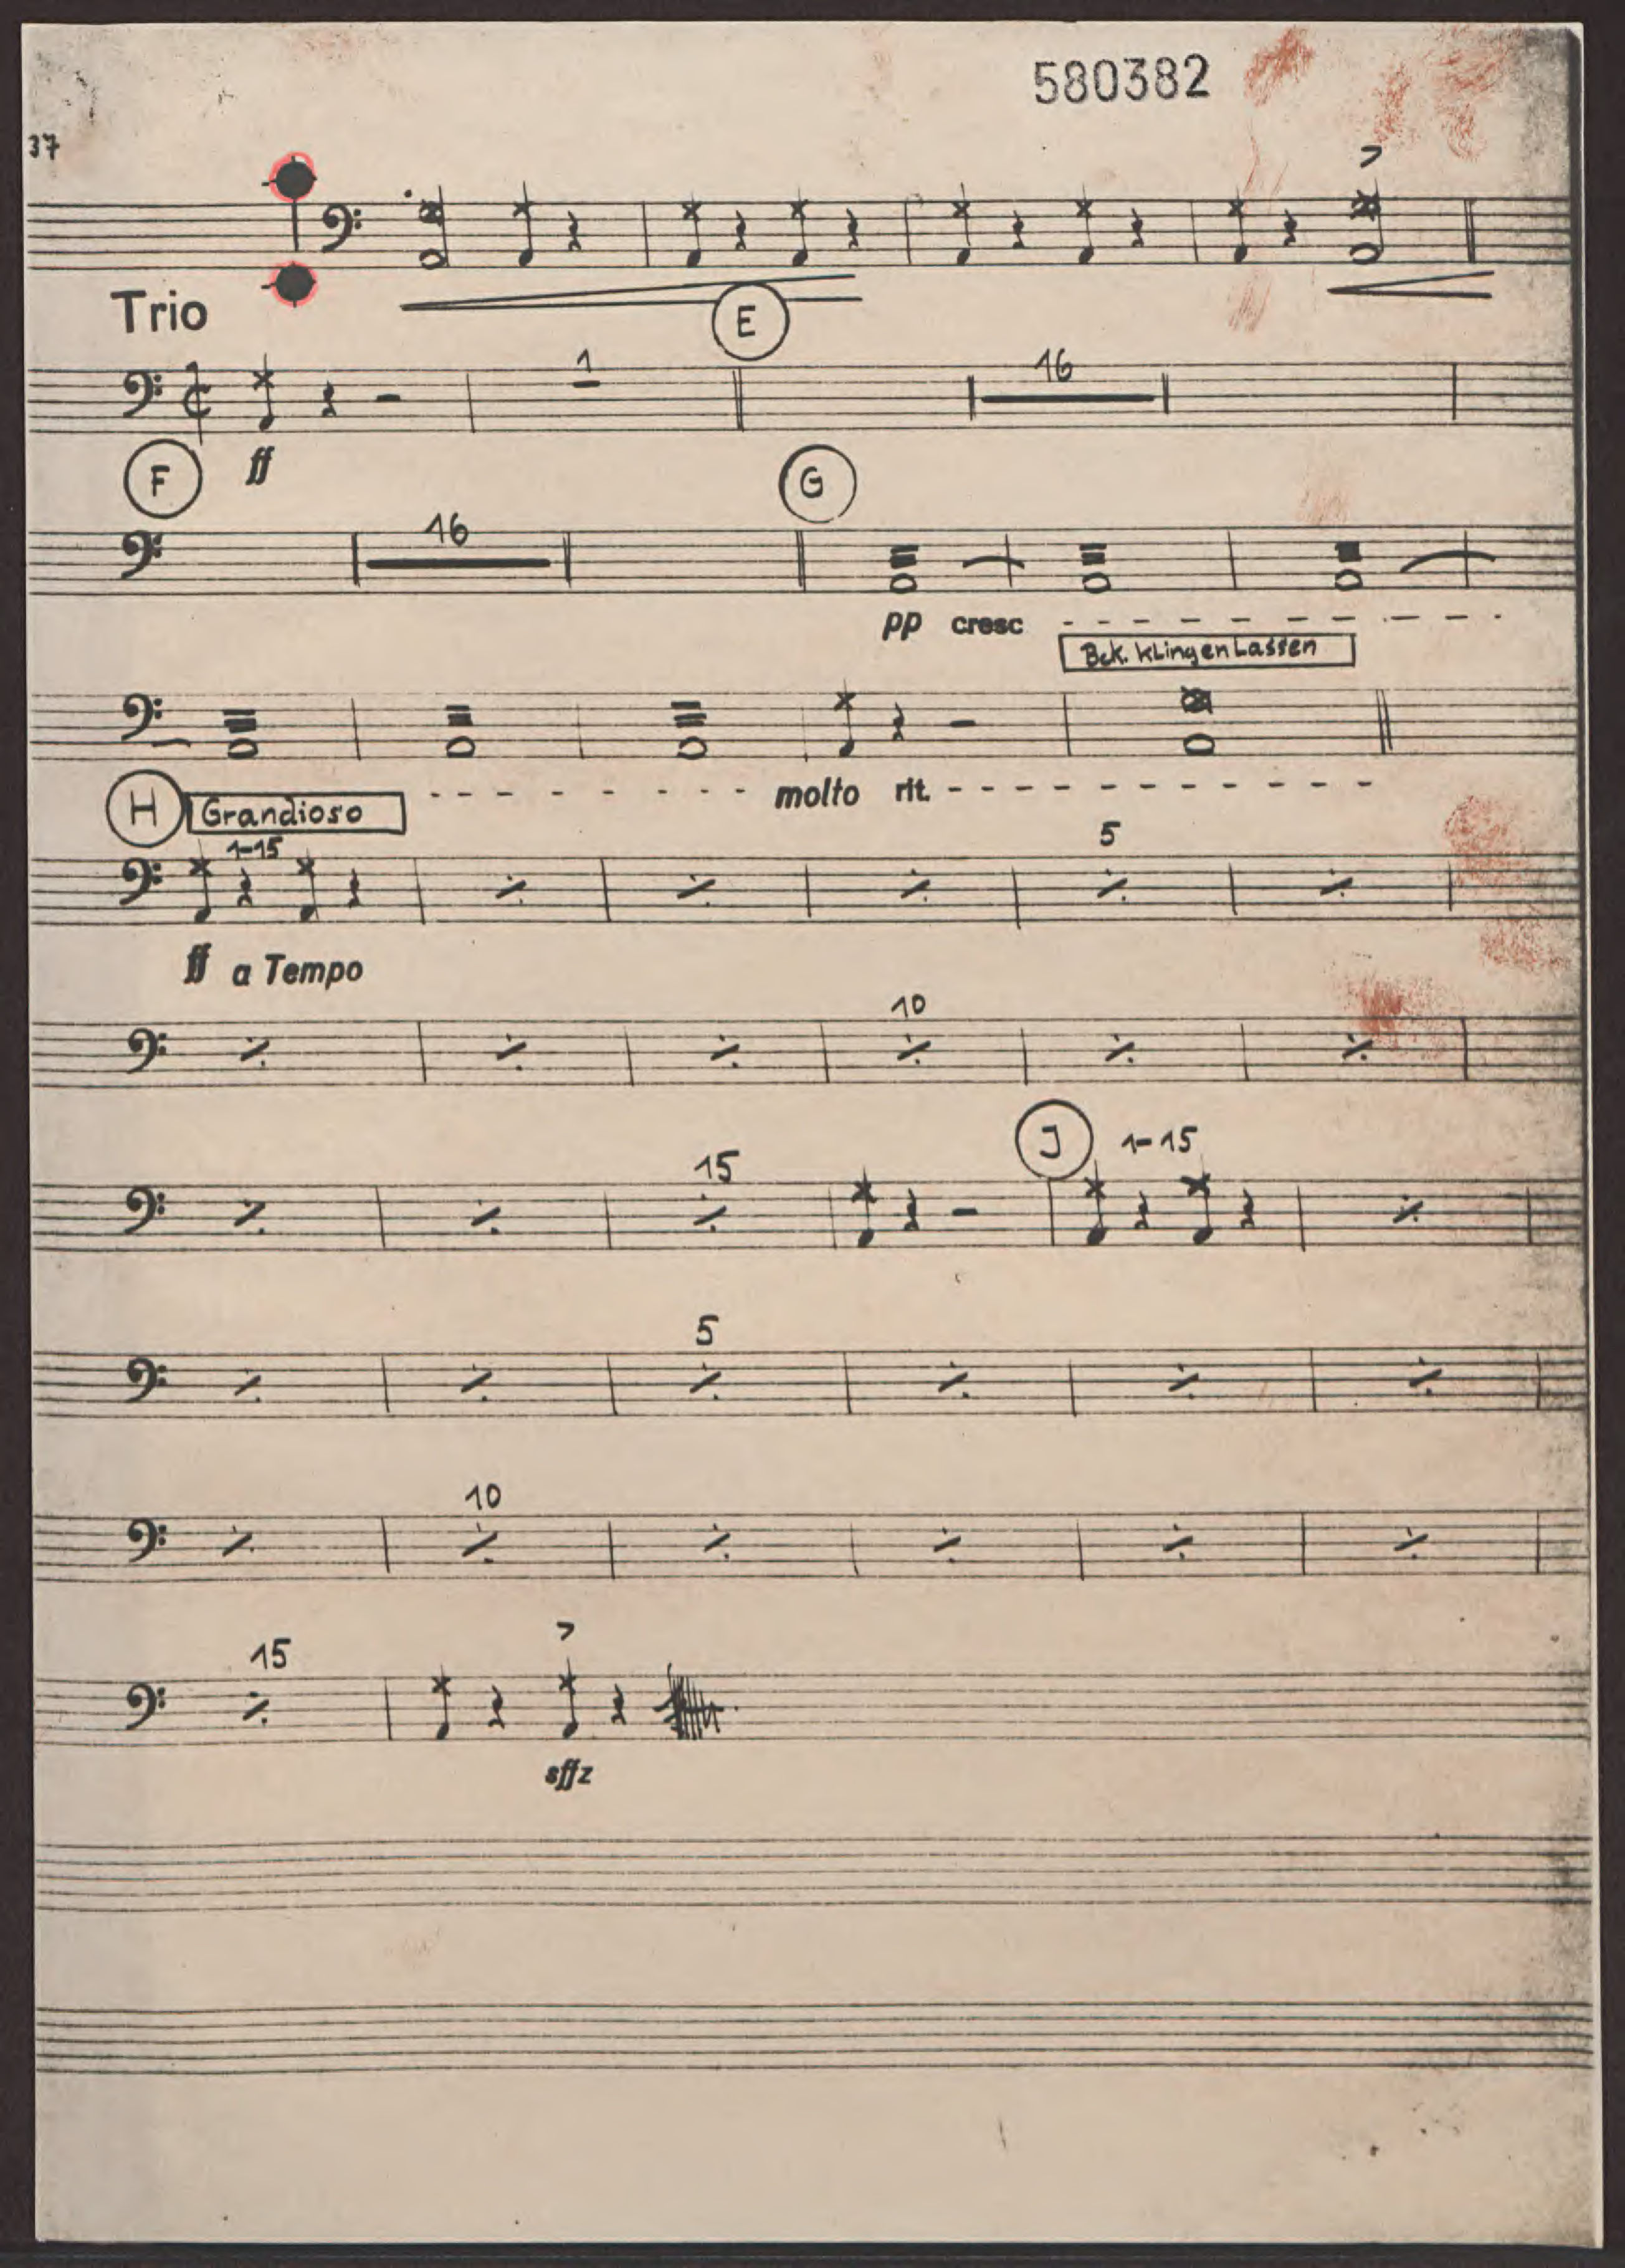 580382
37
Trio
E
1
16
F
ff
G
16
pp cresc
Bck. klingen Lassen
molto rit.
H
Grandioso
1-15
5
ff a Tempo
10
J
1-15
15
5
10
15
sffz